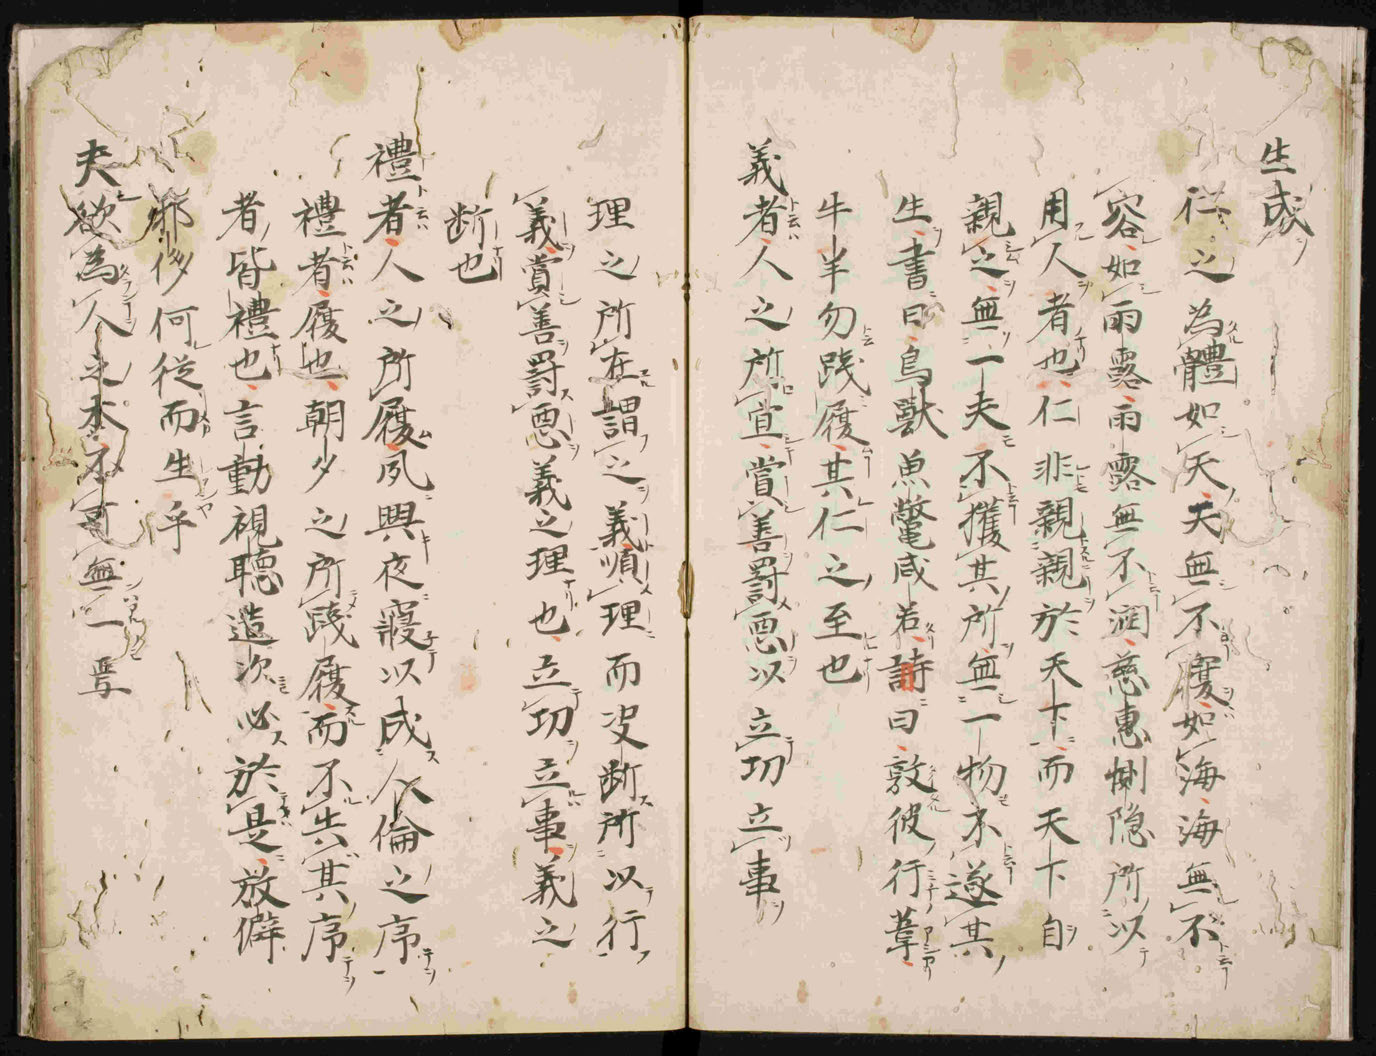 生成
仁之為體如天天無不覆如海海無不
容如雨露雨露無不潤慈惠惻隠所以
用人者也仁非親親於天下而天下自
親之無一夫不獲其所無一物不遂其
生書曰鳥獸魚鼈咸若詩曰敦彼行葦
牛羊勿踐履其仁之至也
義者人之所宜賞善罸悪以立切立事
理之所在謂之義順理而决断所以行
義賞善罸悪義之理也立切立事義之
断也
禮者人之所履夙興夜寢以成人倫之序
禮者履也朝夕之所踐履而不失其序
者皆禮也言動視聽造次必於是放僻
邪侈何従而生乎
夫欲為人之本不可無一焉